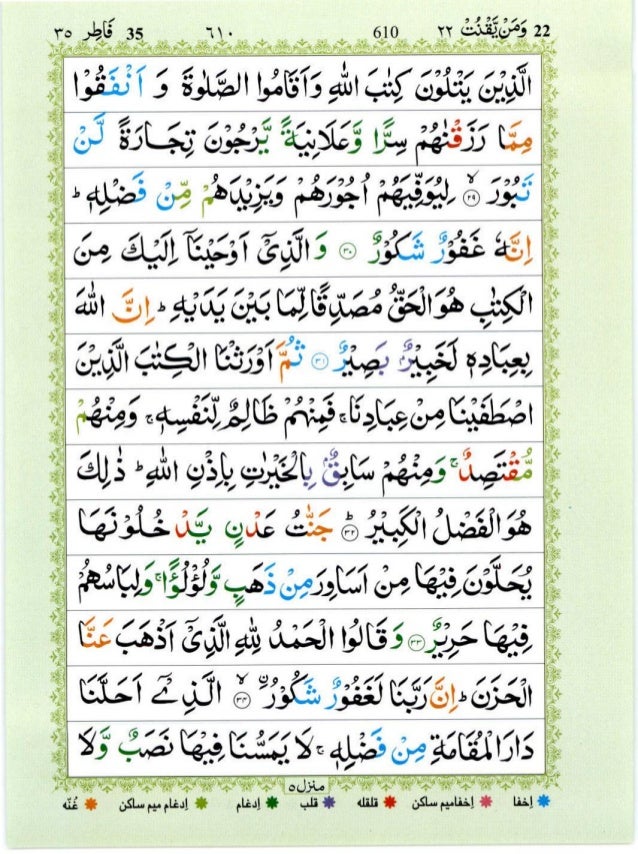 22 وَمَنْ يَّقْنُتْ ٢٢ 610 ٦١٠ فَاطِر 35 ٣٥
الَّذِيْنَ يَتْلُوْنَ كِتٰبَ اللّٰهِ وَاَقَامُوا الصَّلٰوةَ وَ اَنْفَقُوْا
مِمَّا رَزَقْنٰهُمْ سِرًّا وَّعَلَانِيَةً يَّرْجُوْنَ تِجَارَةً لَّنْ
تَبُوْرَ ۙ﴿۲۹﴾ لِيُوَفِّيَهُمْ اُجُوْرَهُمْ وَيَزِيْدَهُمْ مِّنْ فَضْلِهٖ ؕ
اِنَّهٗ غَفُوْرٌ شَكُوْرٌ ﴿۳۰﴾ وَ الَّذِيْۤ اَوْحَيْنَاۤ اِلَيْكَ مِنَ
الْكِتٰبِ هُوَ الْحَقُّ مُصَدِّقًا لِّمَا بَيْنَ يَدَيْهِ ؕ اِنَّ اللّٰهَ
بِعِبَادِهٖ لَخَبِيْرٌۢ بَصِيْرٌ ﴿۳۱﴾ ثُمَّ اَوْرَثْنَا الْكِتٰبَ الَّذِيْنَ
اصْطَفَيْنَا مِنْ عِبَادِنَا ۚ فَمِنْهُمْ ظَالِمٌ لِّنَفْسِهٖ ۚ وَمِنْهُمْ
مُّقْتَصِدٌ ۚ وَمِنْهُمْ سَابِقٌۢ بِالْخَيْرٰتِ بِاِذْنِ اللّٰهِ ؕ ذٰلِكَ
هُوَ الْفَضْلُ الْكَبِيْرُ ؕ﴿۳۲﴾ جَنّٰتُ عَدْنٍ يَّدْخُلُوْنَهَا
يُحَلَّوْنَ فِيْهَا مِنْ اَسَاوِرَ مِنْ ذَهَبٍ وَّلُؤْلُؤًا ۚ وَلِبَاسُهُمْ
فِيْهَا حَرِيْرٌ ﴿۳۳﴾ وَ قَالُوا الْحَمْدُ لِلّٰهِ الَّذِيْۤ اَذْهَبَ عَنَّا
الْحَزَنَ ؕ اِنَّ رَبَّنَا لَغَفُوْرٌ شَكُوْرُۨ ۙ﴿۳۴﴾ الَّذِيْۤ اَحَلَّنَا
دَارَ الْمُقَامَةِ مِنْ فَضْلِهٖ ۚ لَا يَمَسُّنَا فِيْهَا نَصَبٌ وَّلَا
منزل ۵
اِخفا اِخفامیم ساکن قلقله قلب اِدغام اِدغام میم ساکن غُنّه